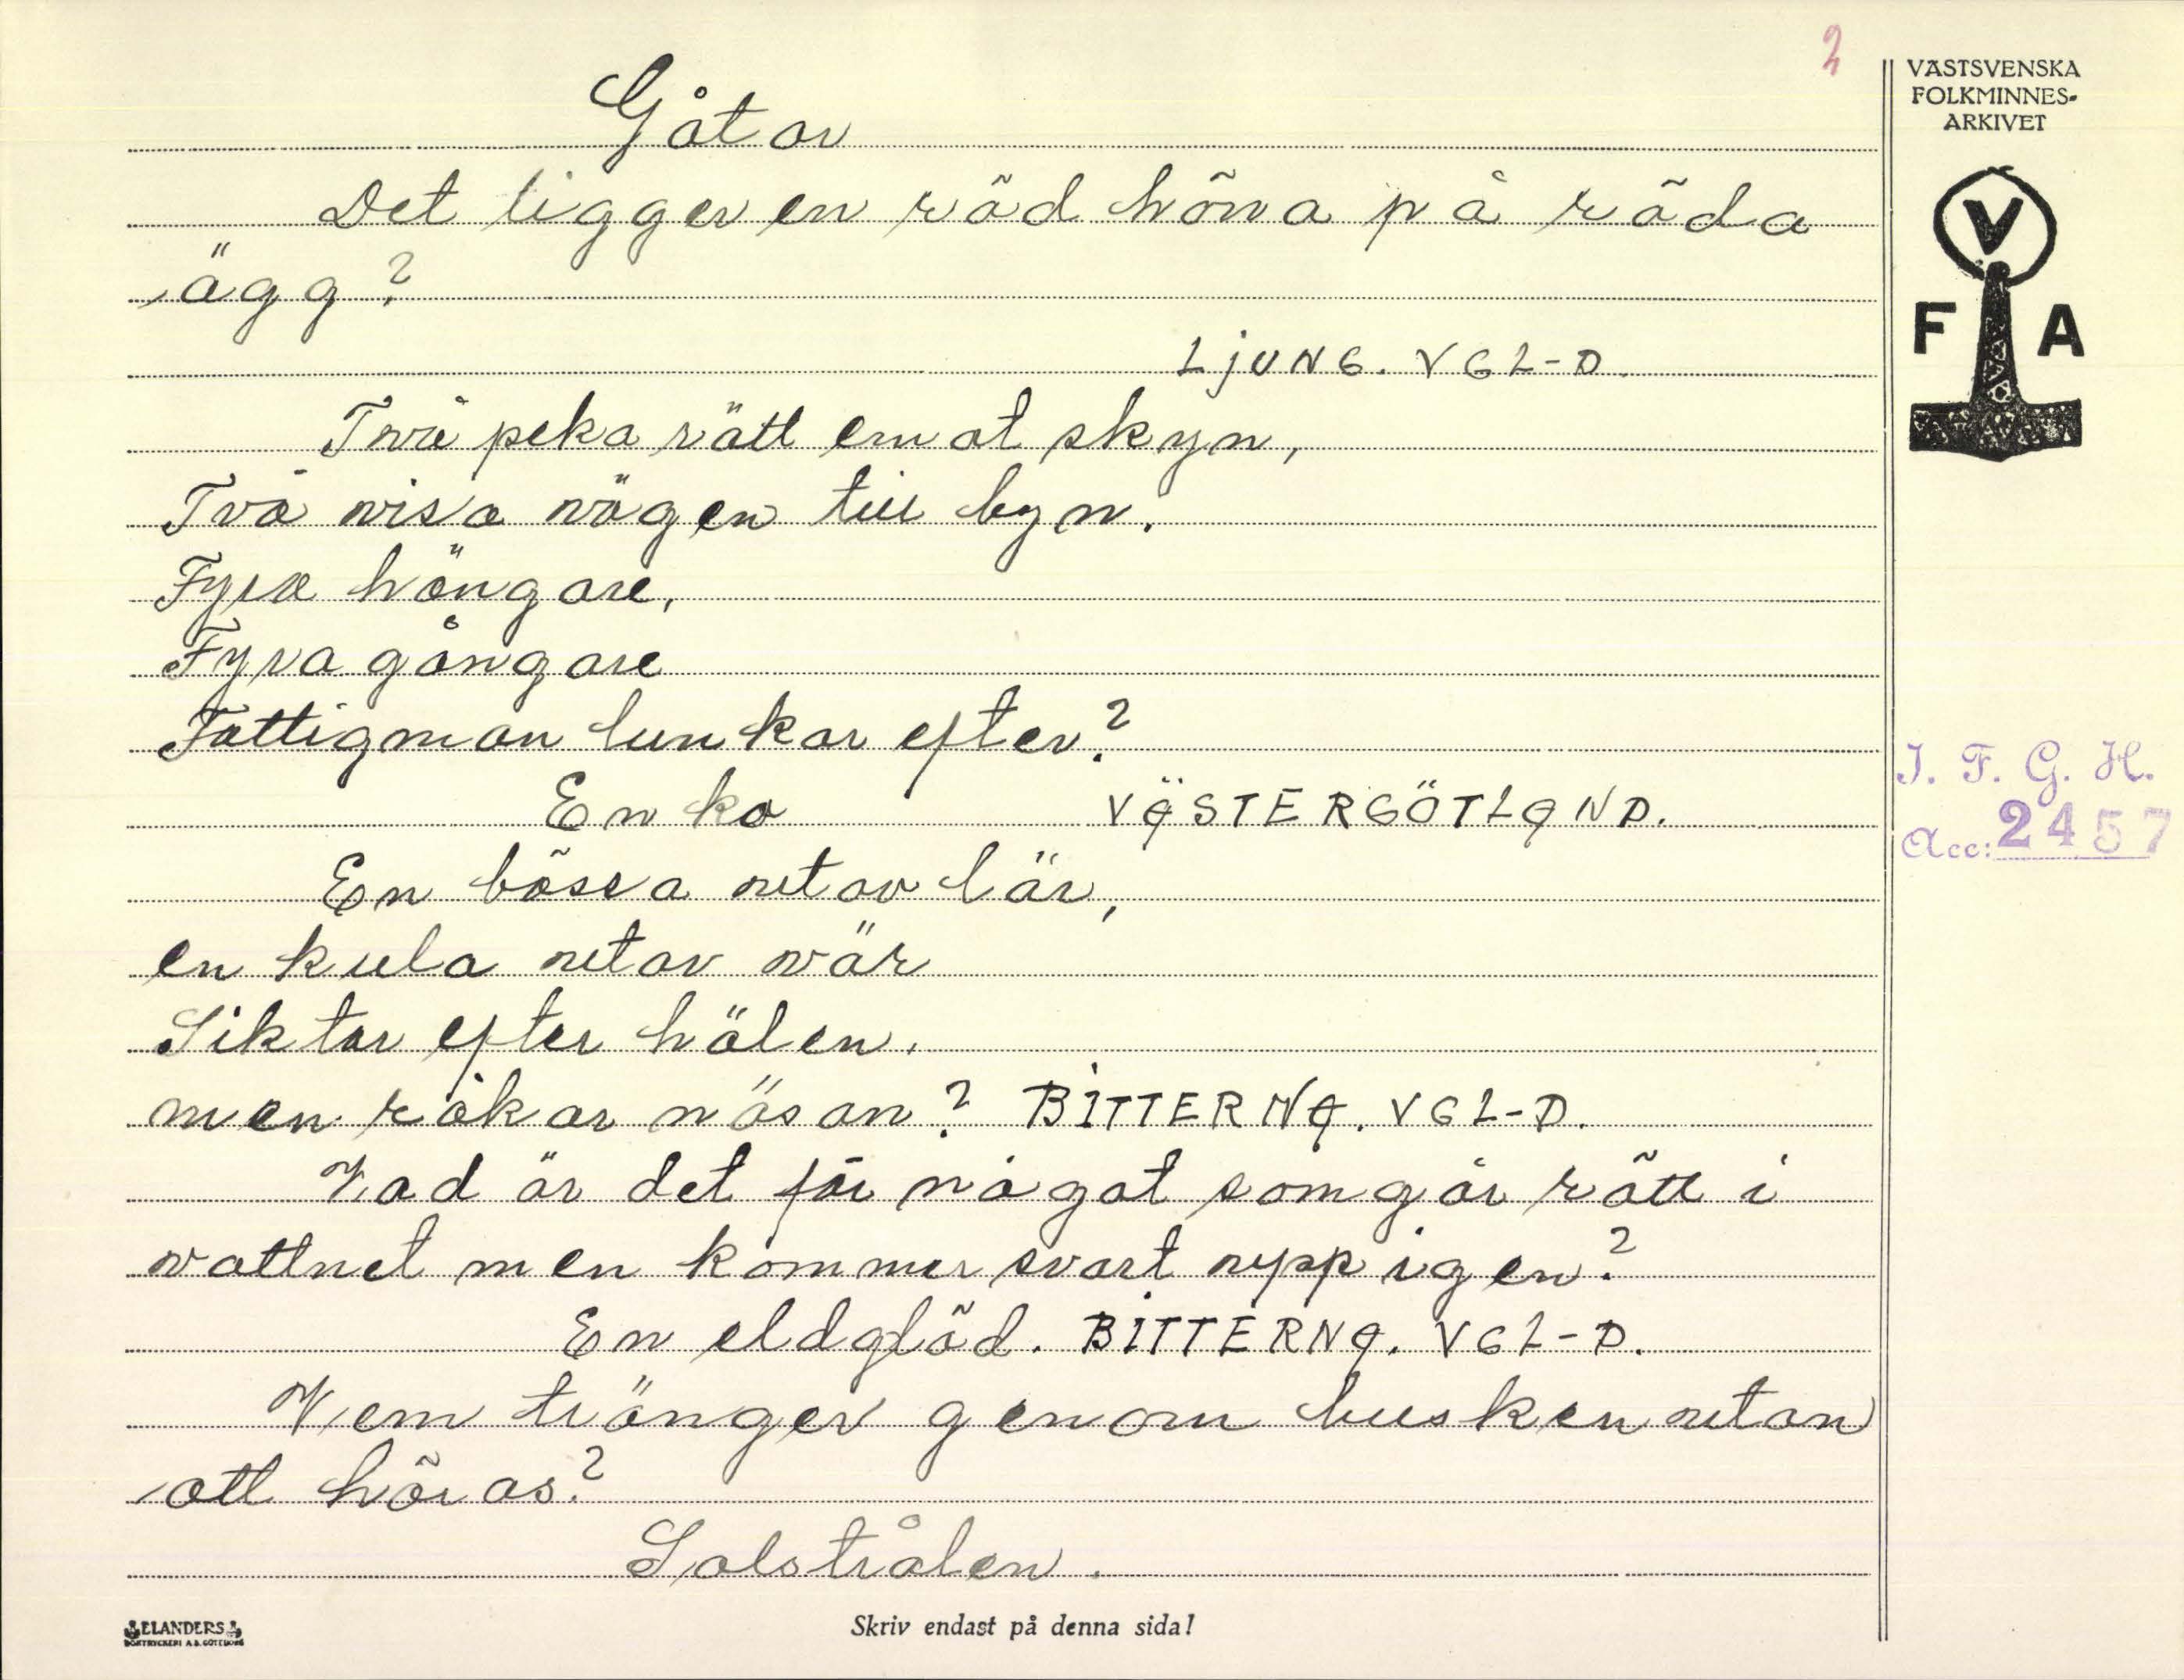 2
VÄSTSVENSKA
FOLKMINNES-
ARKIVET
V
F A
Gåtor
Det ligger en röd höna på röda
ägg?
LjUNG. VGL-D.
Två peka rätt emot skyn,
Två visa vägen till byn.
Fyra hängare,
Fyra gångare
Fattigman lunkar efter?
En ko VÄSTERGÖTLAND.
En bössa utav lär,
en kula utav vär
Siktar efter hälen.
men råkar näsan? BITTERNA. VGL-D.
Vad är det för något som går rött i
vattnet men kommer svart upp igen?
En eldglöd. BITTERNA. VGL-D.
Vem tränger genom busken utan
att höras?
Solstrålen.
I. F. G. H.
Acc: 2457
ELANDERS
BOKTRYCKERI A.B. GÖTEBORG
Skriv endast på denna sida!